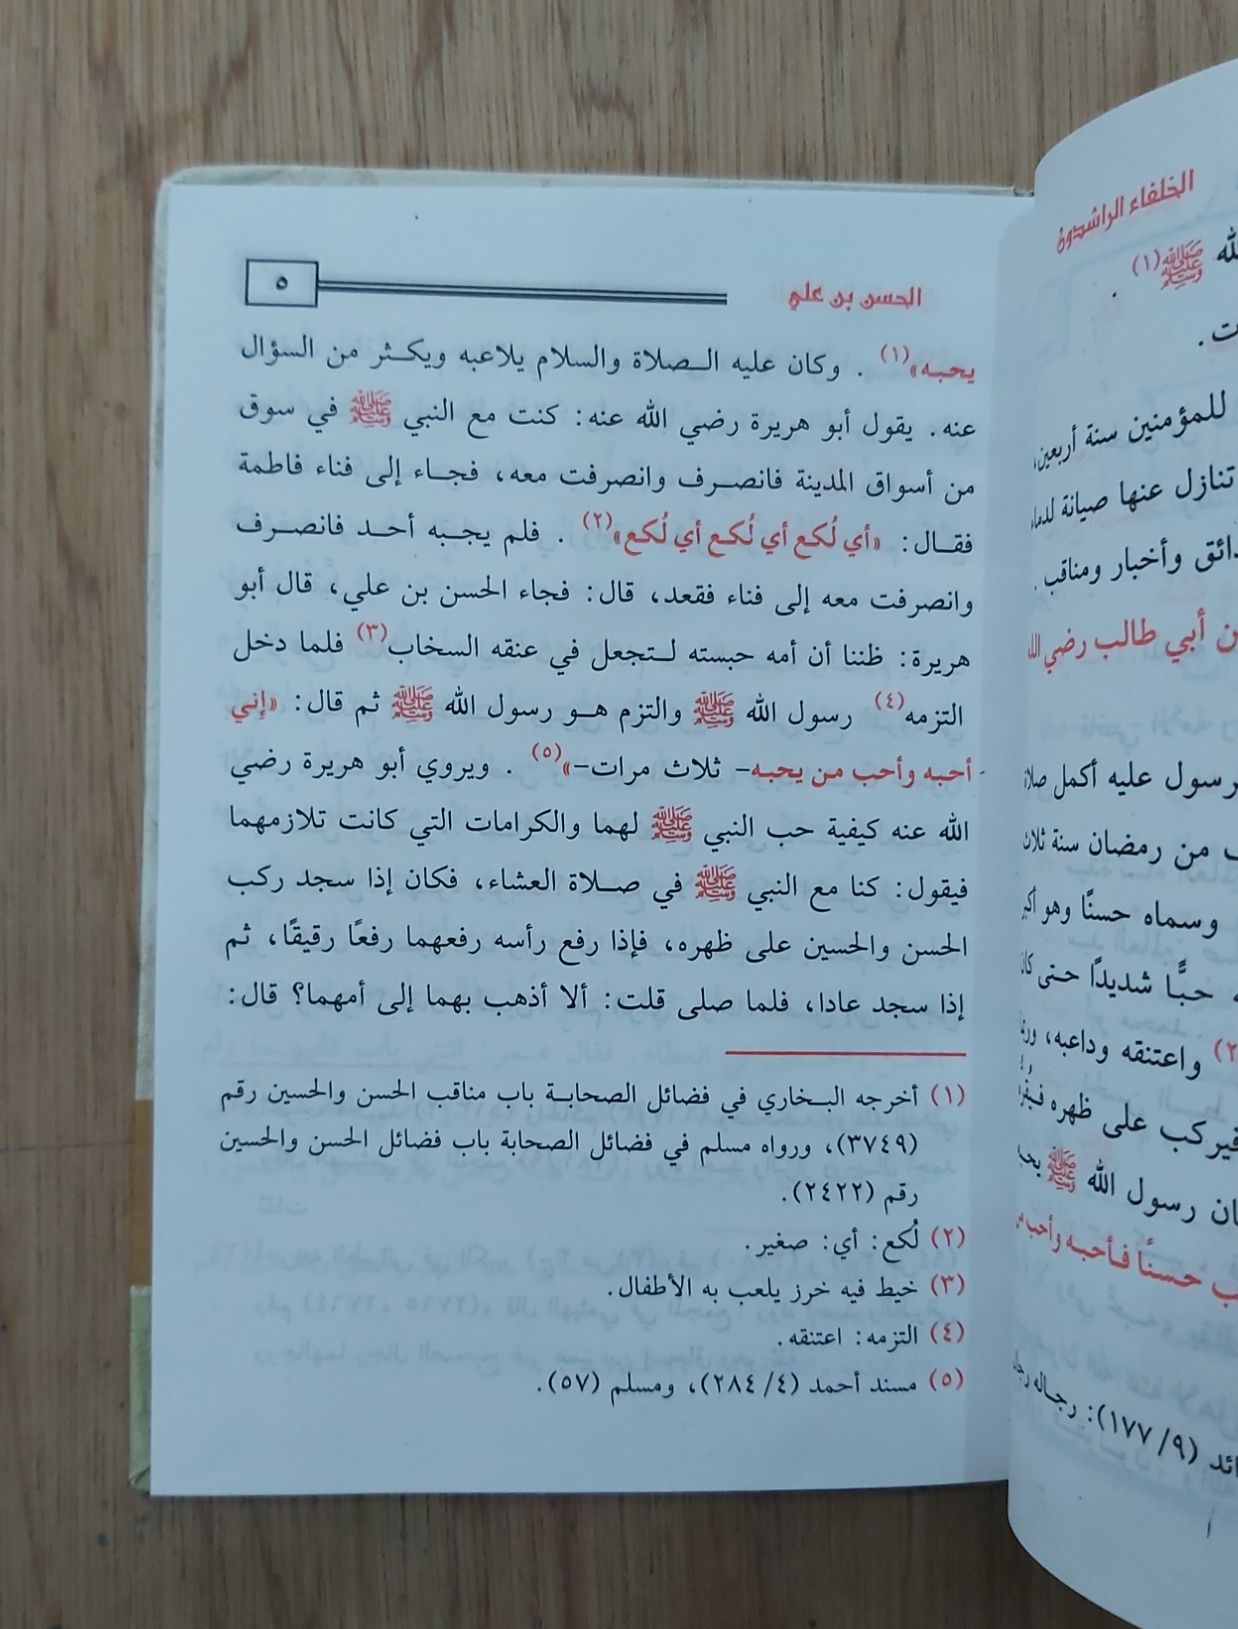 الخلفاء الراشدون
لله ﷺ(١) .
ت.
للمؤمنين سنة أربعين،
تنازل عنها صيانة لدماء
وأخبار ومناقب.
ن أبي طالب رضي الله
رسول عليه أكمل صلاة
من رمضان سنة ثلاث
وسماه حسنًا وهو أكبر
حبًّا شديدًا حتى كان
(٢) واعتنقه وداعبه،
فيركب على ظهره
رسول الله ﷺ
حسنًا فأحبه وأحب من
(٩/ ١٧٧): رجاله
الحسن بن علي
٥
يحبه»(١) . وكان عليه الصلاة والسلام يلاعبه ويكثر من السؤال
عنه. يقول أبو هريرة رضي الله عنه: كنت مع النبي ﷺ في سوق
من أسواق المدينة فانصرف وانصرفت معه، فجاء إلى فناء فاطمة
فقال: «أي لُكع أي لُكع أي لُكع»(٢) . فلم يجبه أحد فانصرف
وانصرفت معه إلى فناء فقعد، قال: فجاء الحسن بن علي، قال أبو
هريرة: ظننا أن أمه حبسته لتجعل في عنقه السخاب(٣) فلما دخل
التزمه(٤) رسول الله ﷺ والتزم هو رسول الله ﷺ ثم قال: «إني
أحبه وأحب من يحبه- ثلاث مرات-»(٥) . ويروي أبو هريرة رضي
الله عنه كيفية حب النبي ﷺ لهما والكرامات التي كانت تلازمهما
فيقول: كنا مع النبي ﷺ في صلاة العشاء، فكان إذا سجد ركب
الحسن والحسين على ظهره، فإذا رفع رأسه رفعهما رفعًا رقيقًا، ثم
إذا سجد عادا، فلما صلى قلت: ألا أذهب بهما إلى أمهما؟ قال:
(١) أخرجه البخاري في فضائل الصحابة باب مناقب الحسن والحسين رقم
(٣٧٤٩)، ورواه مسلم في فضائل الصحابة باب فضائل الحسن والحسين
رقم (٢٤٢٢).
(٢) لُكع: أي: صغير.
(٣) خيط فيه خرز يلعب به الأطفال.
(٤) التزمه: اعتنقه.
(٥) مسند أحمد (٤/ ٢٨٤)، ومسلم (٥٧).